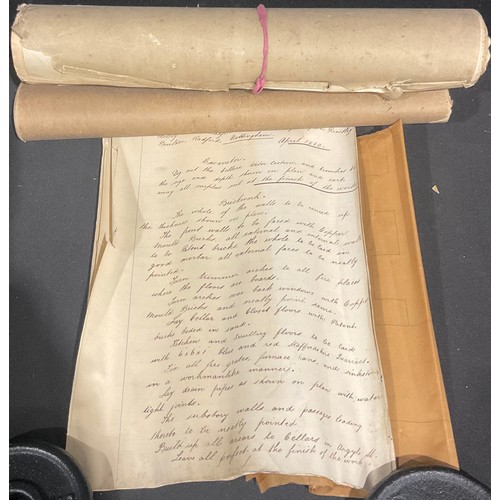 Radford, Nottingham April
Excavator.
Dig out the Cellars and trenches to
the size and depth shown in plan and cart
away all surplus out at the finish of the work
Brickwork.
The whole of the walls to be carried up
the thickness shown in plans.
The front walls to be faced with
Mould Bricks all external and internal walls
to be Bricks the whole to be laid in
good mortar all external faces to be neatly
pointed.
Turn trimmer arches to all fire places
where the floors are boards.
Turn arches over back windows with
Mould Bricks and neatly point same.
Lay Cellar and Closet floors with
bricks beded in sand.
Kitchen and Scullery floors to be laid
with 6x6x1 blue and red Staffordshire Quarries.
Fix all fire grates, furnace pans, and sinkstones
in a workmanlike manner.
Lay drain pipes as shown on plan with water
tight joints.
The walls and passages leading
thereto to be neatly pointed
Build up all areas to Cellars in Argyle St.
Leave all perfect at the finish of the work.